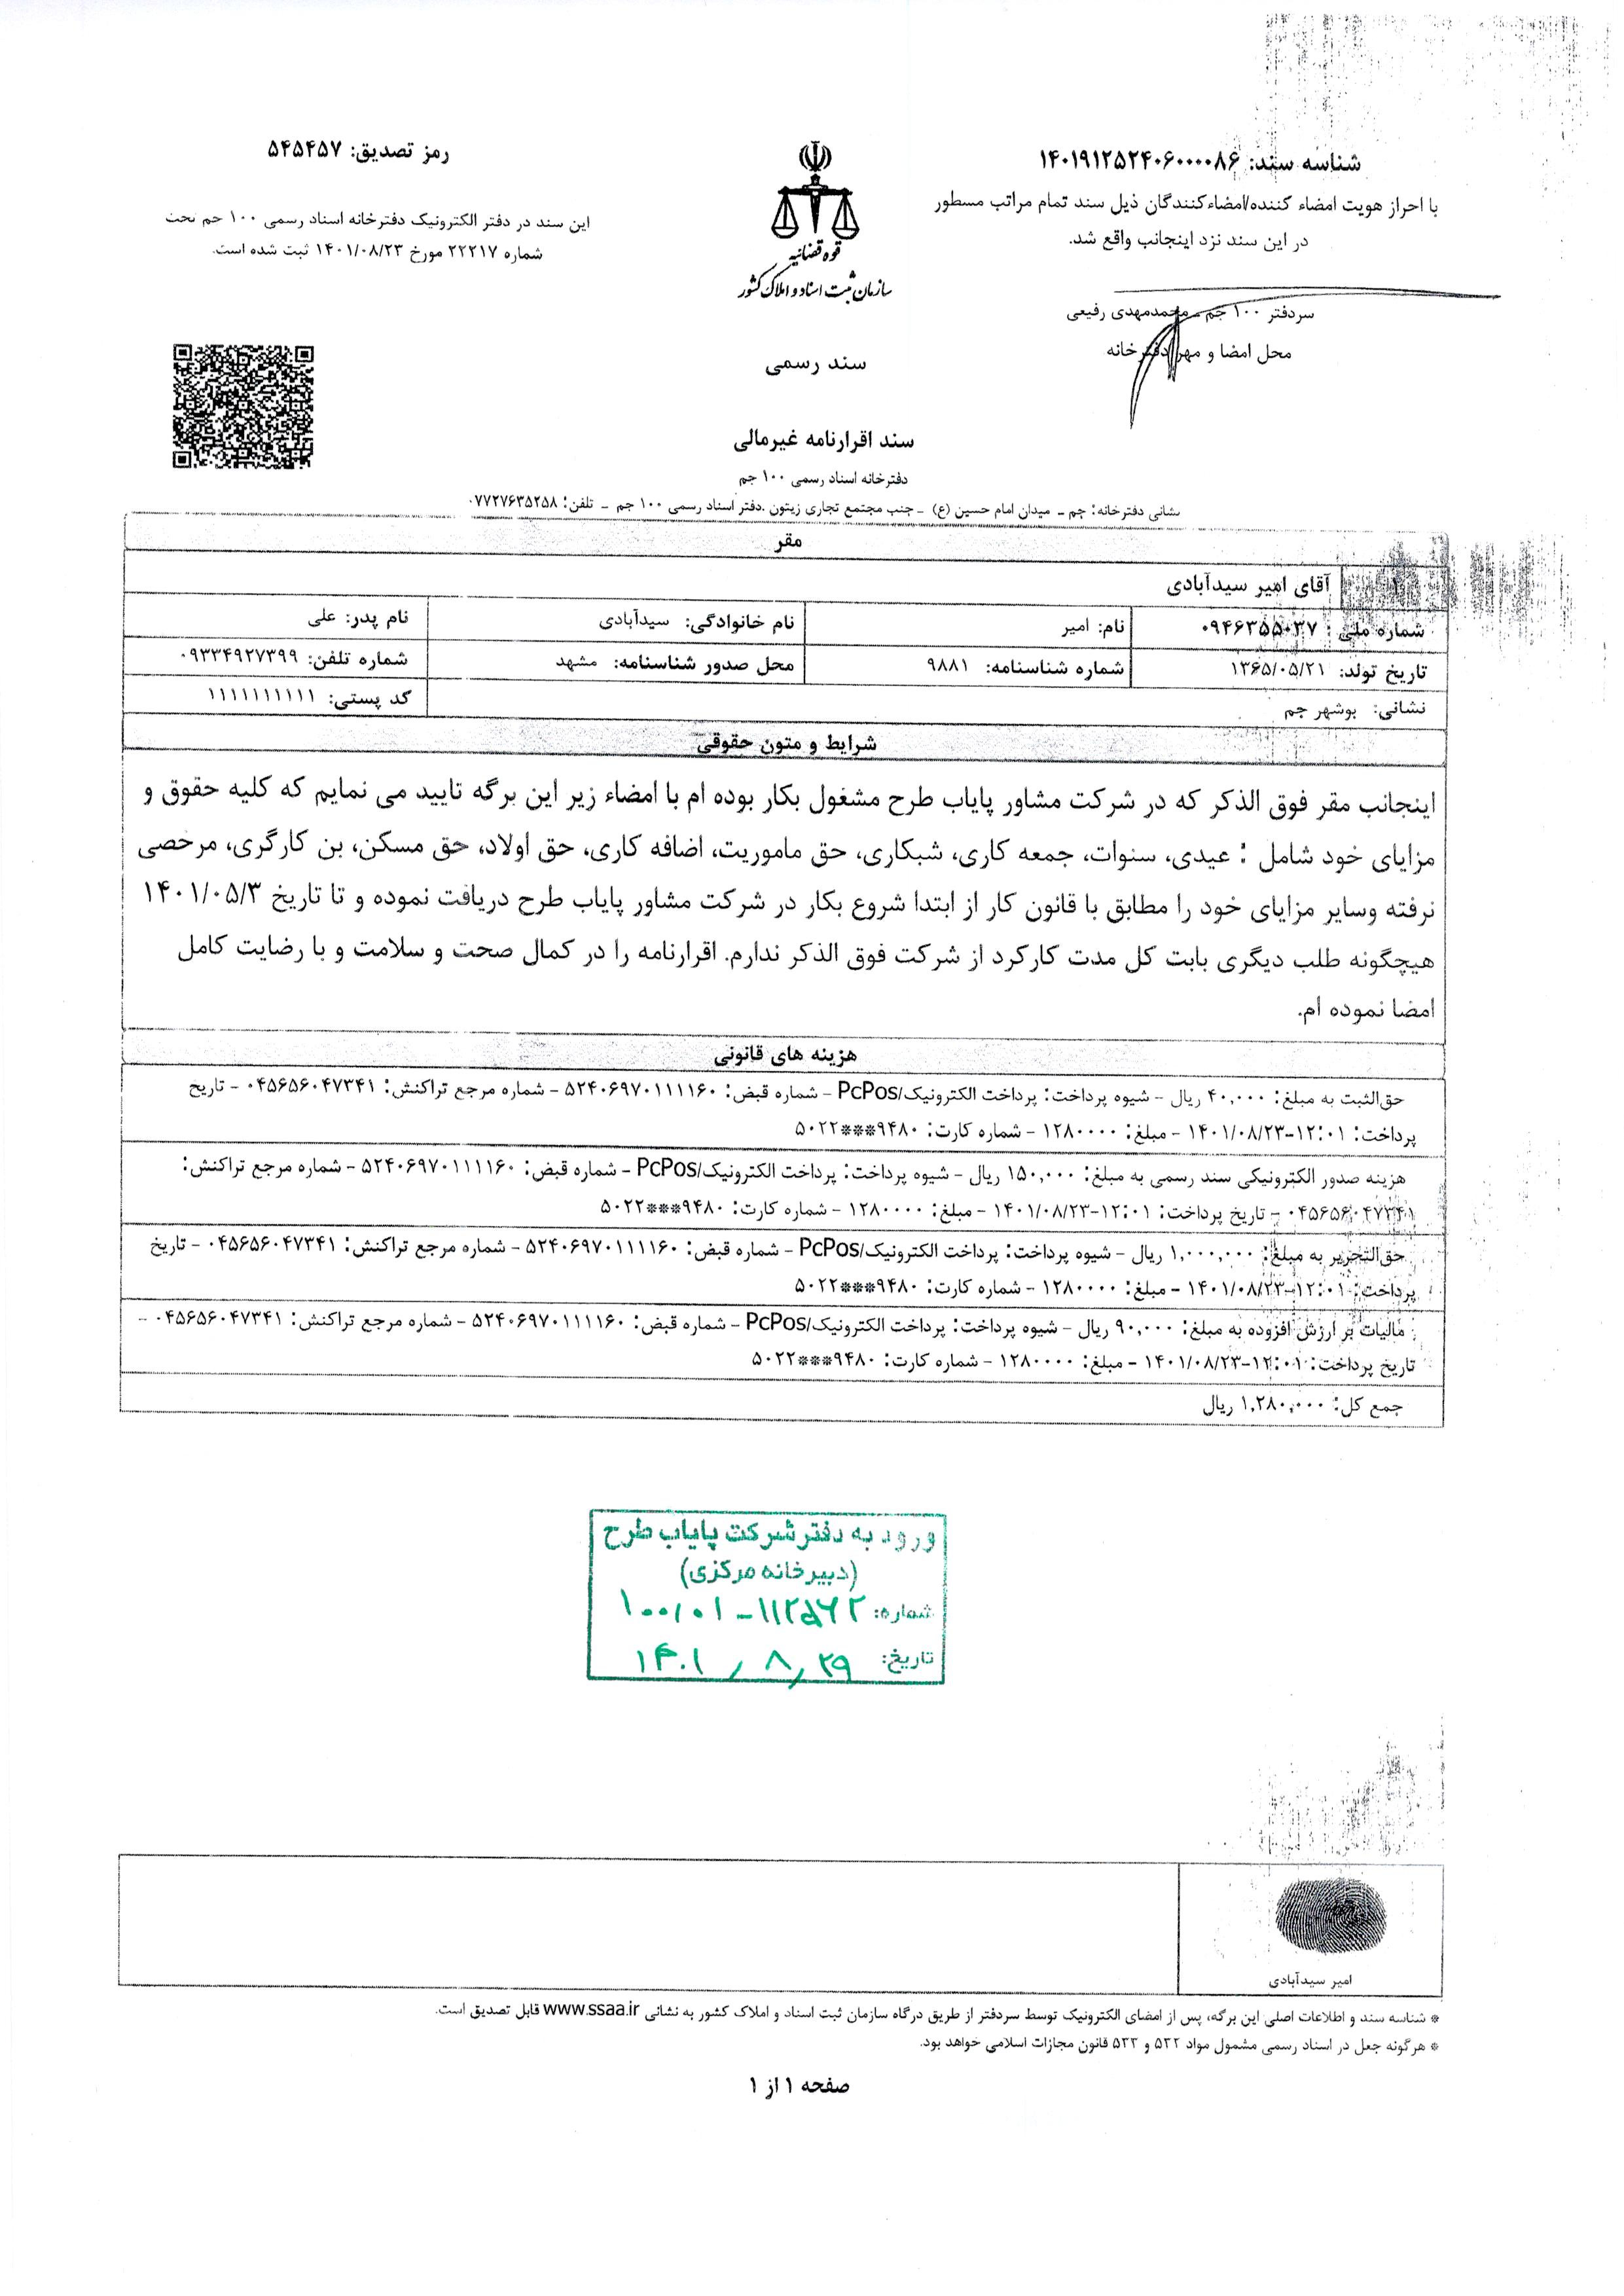 شناسه سند: ۱۴۰۱۹۱۲۵۲۴۰۶۰۰۰۰۸۶
با احراز هویت امضاء کننده/امضاءکنندگان ذیل سند تمام مراتب مسطور
در این سند نزد اینجانب واقع شد.
سردفتر ۱۰۰ جم - محمدمهدی رفیعی
محل امضا و مهر دفترخانه
قوه قضائیه
سازمان ثبت اسناد و املاک کشور
سند رسمی
رمز تصدیق: ۵۴۵۴۵۷
این سند در دفتر الکترونیک دفترخانه اسناد رسمی ۱۰۰ جم تحت
شماره ۲۲۲۱۷ مورخ ۱۴۰۱/۰۸/۲۳ ثبت شده است.
سند اقرارنامه غیرمالی
دفترخانه اسناد رسمی ۱۰۰ جم
نشانی دفترخانه: جم - میدان امام حسین (ع) - جنب مجتمع تجاری زیتون .دفتر اسناد رسمی ۱۰۰ جم - تلفن: ۰۷۷۲۷۶۳۵۲۵۸
مقر
آقای امیر سیدآبادی
شماره ملی: ۰۹۴۶۳۵۵۰۳۷ نام: امیر نام خانوادگی: سیدآبادی نام پدر: علی
تاریخ تولد: ۱۳۶۵/۰۵/۲۱ شماره شناسنامه: ۹۸۸۱ محل صدور شناسنامه: مشهد شماره تلفن: ۰۹۳۳۴۹۲۷۳۹۹
نشانی: بوشهر جم کد پستی: ۱۱۱۱۱۱۱۱۱۱
شرایط و متون حقوقی
اینجانب مقر فوق الذکر که در شرکت مشاور پایاب طرح مشغول بکار بوده ام با امضاء زیر این برگه تایید می نمایم که کلیه حقوق و
مزایای خود شامل : عیدی، سنوات، جمعه کاری، شبکاری، حق ماموریت، اضافه کاری، حق اولاد، حق مسکن، بن کارگری، مرخصی
نرفته وسایر مزایای خود را مطابق با قانون کار از ابتدا شروع بکار در شرکت مشاور پایاب طرح دریافت نموده و تا تاریخ ۱۴۰۱/۰۵/۳
هیچگونه طلب دیگری بابت کل مدت کارکرد از شرکت فوق الذکر ندارم. اقرارنامه را در کمال صحت و سلامت و با رضایت کامل
امضا نموده ام.
هزینه های قانونی
حق‌الثبت به مبلغ: ۴۰,۰۰۰ ریال - شیوه پرداخت: پرداخت الکترونیک/PcPos - شماره قبض: ۵۲۴۰۶۹۷۰۱۱۱۱۶۰ - شماره مرجع تراکنش: ۰۴۵۶۵۶۰۴۷۳۴۱ - تاریخ
پرداخت: ۱۲:۰۱-۱۴۰۱/۰۸/۲۳ - مبلغ: ۱۲۸۰۰۰۰ - شماره کارت: ۹۴۸۰***۵۰۲۲
هزینه صدور الکترونیکی سند رسمی به مبلغ: ۱۵۰,۰۰۰ ریال - شیوه پرداخت: پرداخت الکترونیک/PcPos - شماره قبض: ۵۲۴۰۶۹۷۰۱۱۱۱۶۰ - شماره مرجع تراکنش:
۰۴۵۶۵۶۰۴۷۳۴۱ - تاریخ پرداخت: ۱۲:۰۱-۱۴۰۱/۰۸/۲۳ - مبلغ: ۱۲۸۰۰۰۰ - شماره کارت: ۹۴۸۰***۵۰۲۲
حق‌التحریر به مبلغ: ۱,۰۰۰,۰۰۰ ریال - شیوه پرداخت: پرداخت الکترونیک/PcPos - شماره قبض: ۵۲۴۰۶۹۷۰۱۱۱۱۶۰ - شماره مرجع تراکنش: ۰۴۵۶۵۶۰۴۷۳۴۱ - تاریخ
پرداخت: ۱۲:۰۱-۱۴۰۱/۰۸/۲۳ - مبلغ: ۱۲۸۰۰۰۰ - شماره کارت: ۹۴۸۰***۵۰۲۲
مالیات بر ارزش افزوده به مبلغ: ۹۰,۰۰۰ ریال - شیوه پرداخت: پرداخت الکترونیک/PcPos - شماره قبض: ۵۲۴۰۶۹۷۰۱۱۱۱۶۰ - شماره مرجع تراکنش: ۰۴۵۶۵۶۰۴۷۳۴۱ -
تاریخ پرداخت: ۱۲:۰۱-۱۴۰۱/۰۸/۲۳ - مبلغ: ۱۲۸۰۰۰۰ - شماره کارت: ۹۴۸۰***۵۰۲۲
جمع کل: ۱,۲۸۰,۰۰۰ ریال
ورود به دفتر شرکت پایاب طرح
(دبیرخانه مرکزی)
شماره: ۱۰۰/۰۱-۱۱۲۵۶۲
تاریخ: ۱۴۰۱/۸/۲۹
امیر سیدآبادی
* شناسه سند و اطلاعات اصلی این برگه، پس از امضای الکترونیک توسط سردفتر از طریق درگاه سازمان ثبت اسناد و املاک کشور به نشانی www.ssaa.ir قابل تصدیق است.
* هرگونه جعل در اسناد رسمی مشمول مواد ۵۳۲ و ۵۳۳ قانون مجازات اسلامی خواهد بود.
صفحه ۱ از ۱